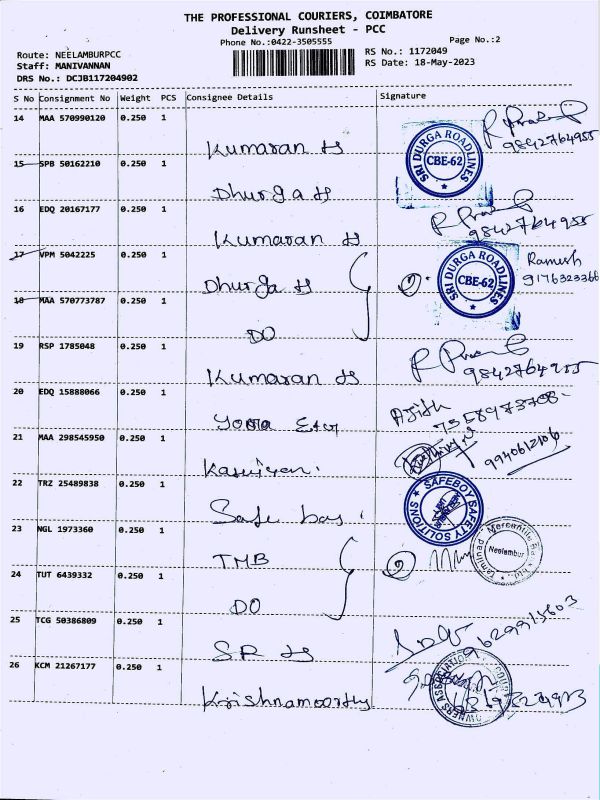 THE PROFESSIONAL COURIERS, COIMBATORE
Delivery Runsheet - PCC
Phone No.:0422-3505555
Page No.:2
Route: NEELAMBURPCC
RS No.: 1172049
Staff: MANIVANNAN
RS Date: 18-May-2023
DRS No.: DCJB117204902
S No Consignment No Weight PCS Consignee Details Signature
14 MAA 570990120 0.250 1
Kumaran
9842764955
SRI DURGA ROADLINES
CBE-62
15 SPB 50162210 0.250 1
Dhurga
16 EDQ 20167177 0.250 1
Kumaran
9842764955
17 VPM 5042225 0.250 1
Dhurga
2
SRI DURGA ROADLINES
CBE-62
Ramesh
18 MAA 570773787 0.250 1
DO
19 RSP 1785048 0.250 1
Kumaran
9842764955
20 EDQ 15888066 0.250 1
Ajith
21 MAA 298545950 0.250 1
22 TRZ 25489838 0.250 1
Safe boy
SAFEBOY SAFETY SOLUTIONS
23 NGL 1973360 0.250 1
TMB
2
Tamilnad Mercantile
Neelambur
24 TUT 6439332 0.250 1
DO
25 TCG 50386809 0.250 1
SR
26 KCM 21267177 0.250 1
Krishnamoorthy
OWNERS ASSOCIATION